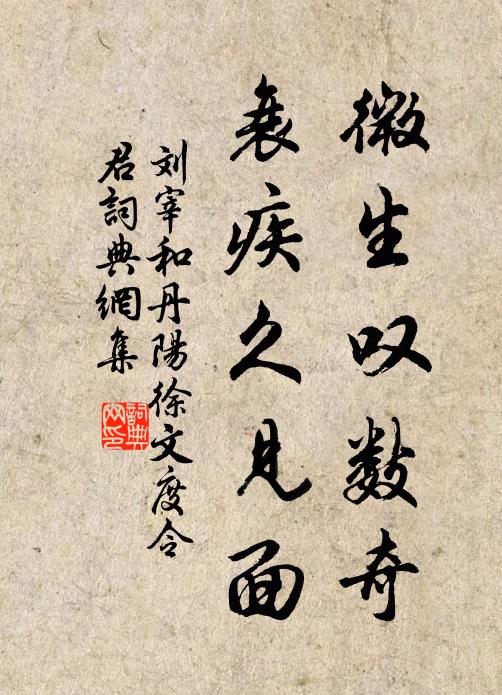 微生叹数奇
衰疾久见面
刘宰和丹陽徐文度令
君詞典網集
詞典网印